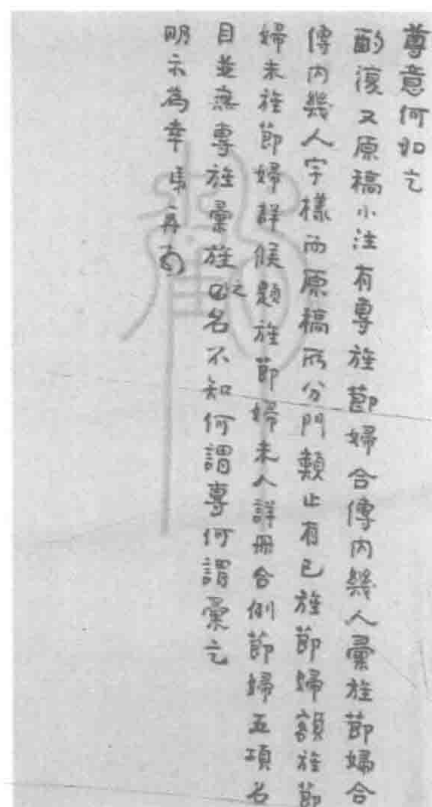 尊意何如乞
酌復又原稿小注有專旌節婦合傳內幾人彙旌節婦合
傳內幾人字樣而原稿所分門類止有已旌節婦額旌節
婦未旌節婦詳候題旌節婦未入詳冊合例節婦五項名
目並無專旌彙旌之名不知何謂專何謂彙乞
明示為幸 再